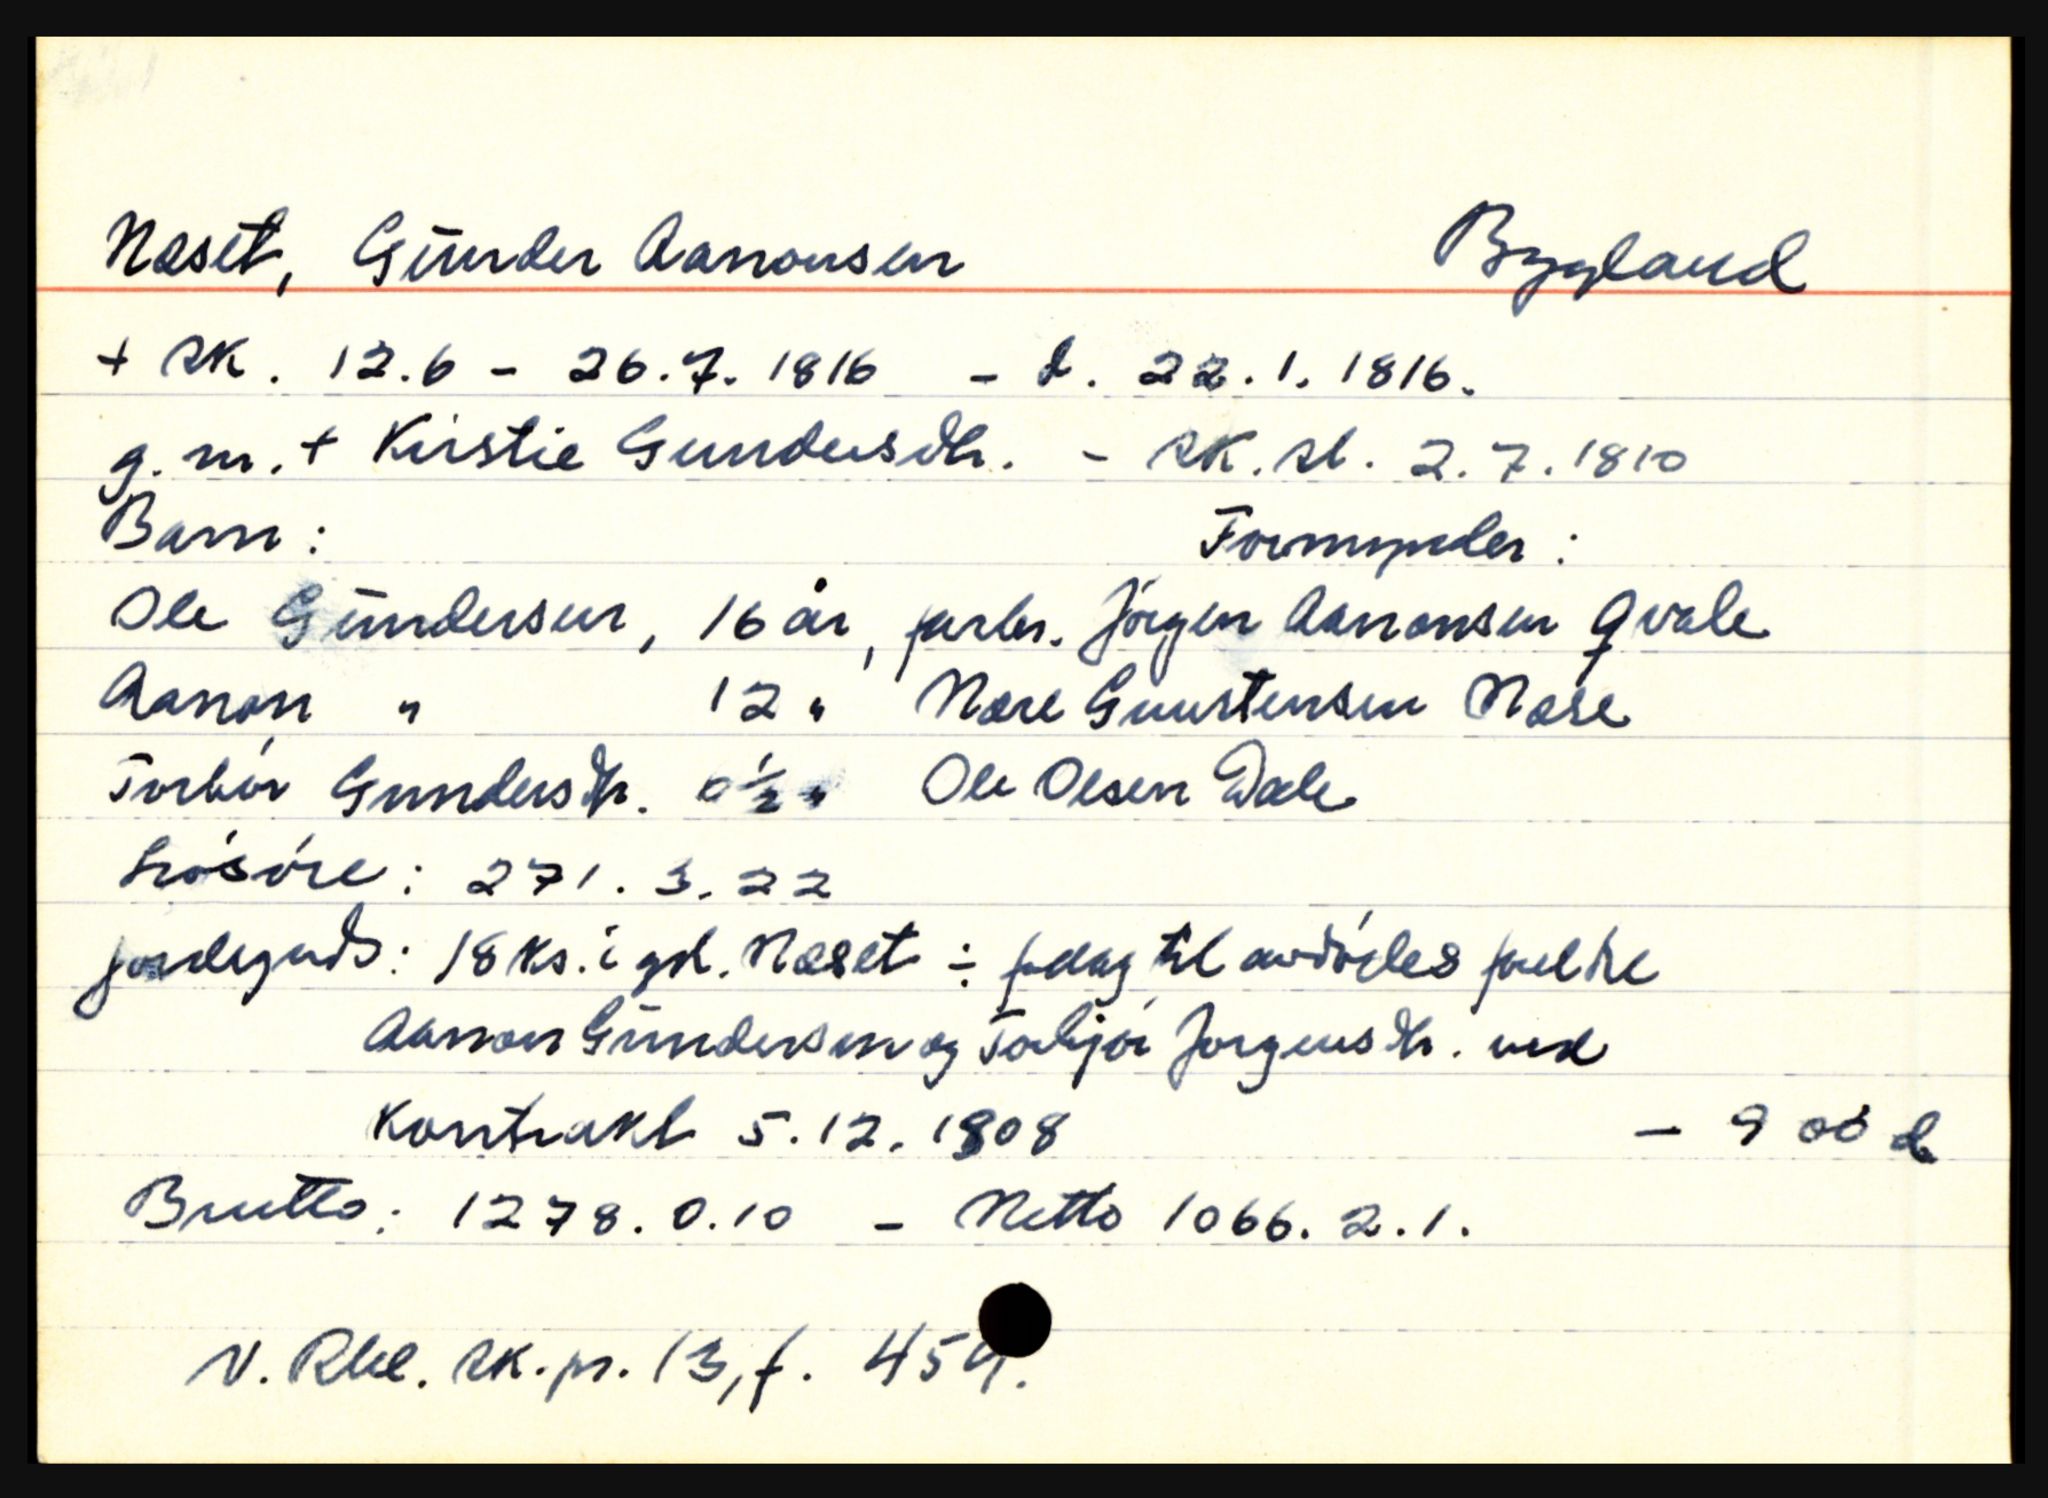 Næset, Günder Aanonsen Bygland
+ sk. 12.6 - 26.7. 1816 - d. 22.1.1816.
g.m. + Kirstie Gundersdtr. - sk. sl. 2.7.1810
Barn: Formynder:
Ole Gündersen, 16 år, farbr. Jörgen Aanonsen Qvale
Aanon " 12 " Nære Gunstensen Næse
Torbör Gundersdtr. 6½ " Ole Olsen Dale
Lösöre: 271.3.22
jordegods: 18 ks. i gd. Næset ÷ fdlag til avdödes foreldre
Aanon Gündersen og Torbjör Jorgensdtr. ved
Kontrakt 5.12.1808 - 900 d
Brutto: 1278.0.10 - Netto 1066.2.1.
N. Rbl. sk.pr. 13, f. 459.